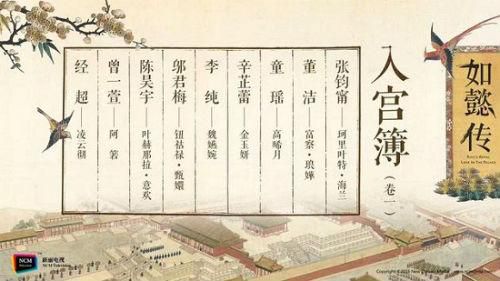 如懿传
RUYI'S ROYAL
LOVE IN THE PALACE
入宫簿（卷一）
张钧甯——珂里叶特·海兰
董洁——富察·琅嬅
童瑶——高晞月
辛芷蕾——金玉妍
李纯——魏嬿婉
邬君梅——钮祜禄·甄嬛
陈昊宇——叶赫那拉·意欢
曾一萱——阿箬
经超——凌云彻
NCM
新丽电视
NCM Television
Copyright © 2016 New Classics Media